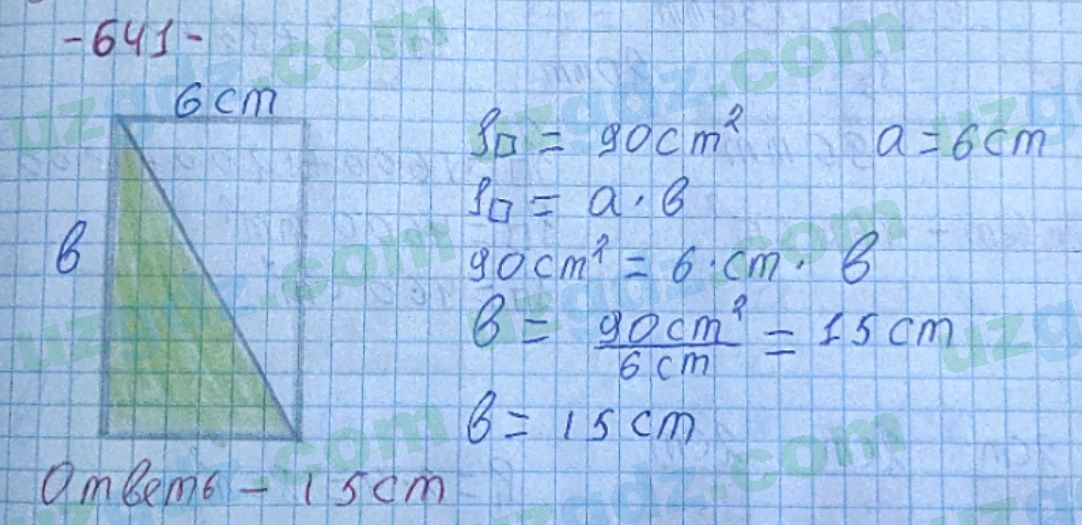 -641-
6 cm
S□ = 90 cm² a = 6 cm
S□ = a · в
в
90 cm² = 6 · cm · в
в = 90 cm² / 6 cm = 15 cm
в = 15 cm
Ответь - 15 cm
uzgdz.com